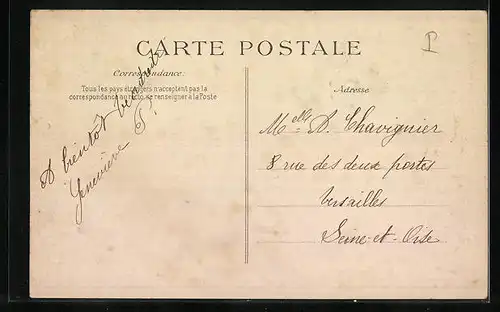 CARTE POSTALE
P
Correspondance:
Tous les pays étrangers n'acceptent pas la
correspondance au recto, se renseigner à la Poste
A bientôt
Geneviève
Adresse
Melle A. Chavignier
8 rue des deux portes
Versailles
Seine-et-Oise